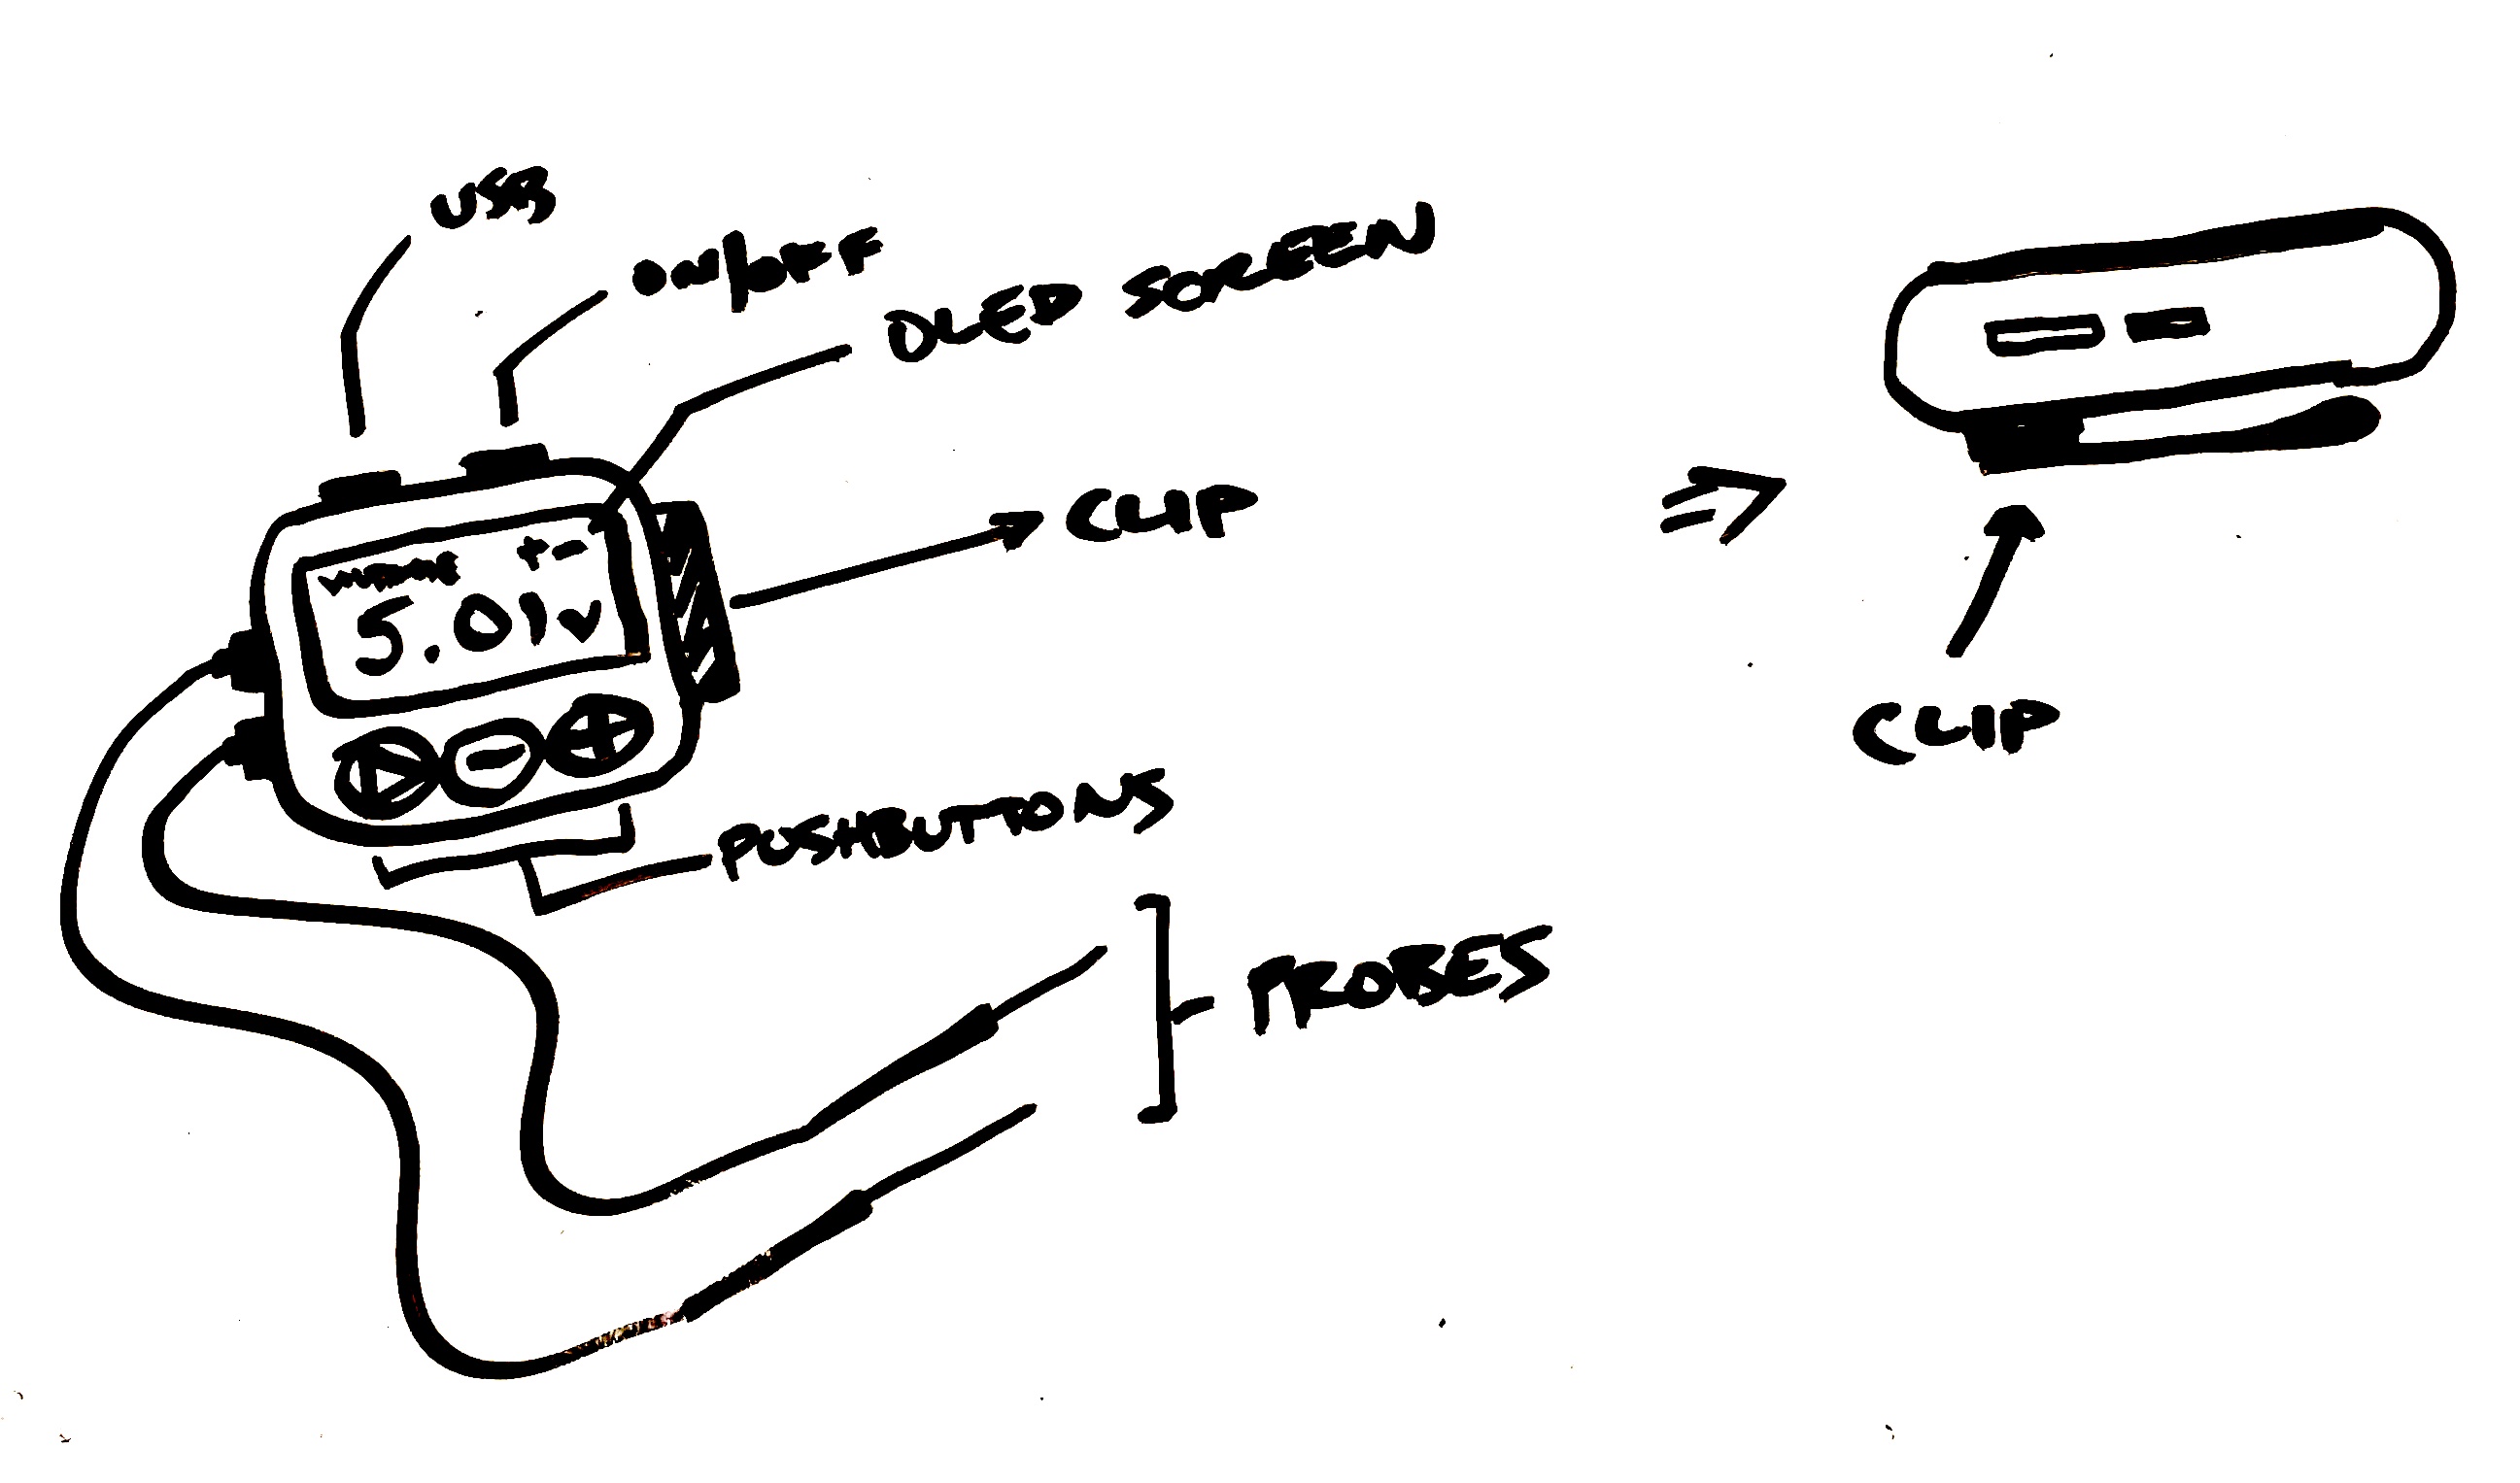 USB
ON/OFF
OLED SCREEN
CLIP
5.01V
PUSHBUTTONS
PROBES
CLIP